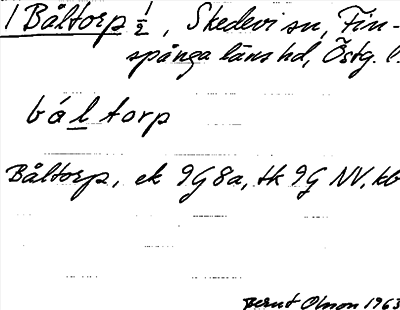 1 Båltorp ½, Skedevi sn, Fin-
spånga läns hd, Östg. l.
bál torp
Båltorp, ek 9G8a, tk 9G NV, kb
Bernt Olsson 1963